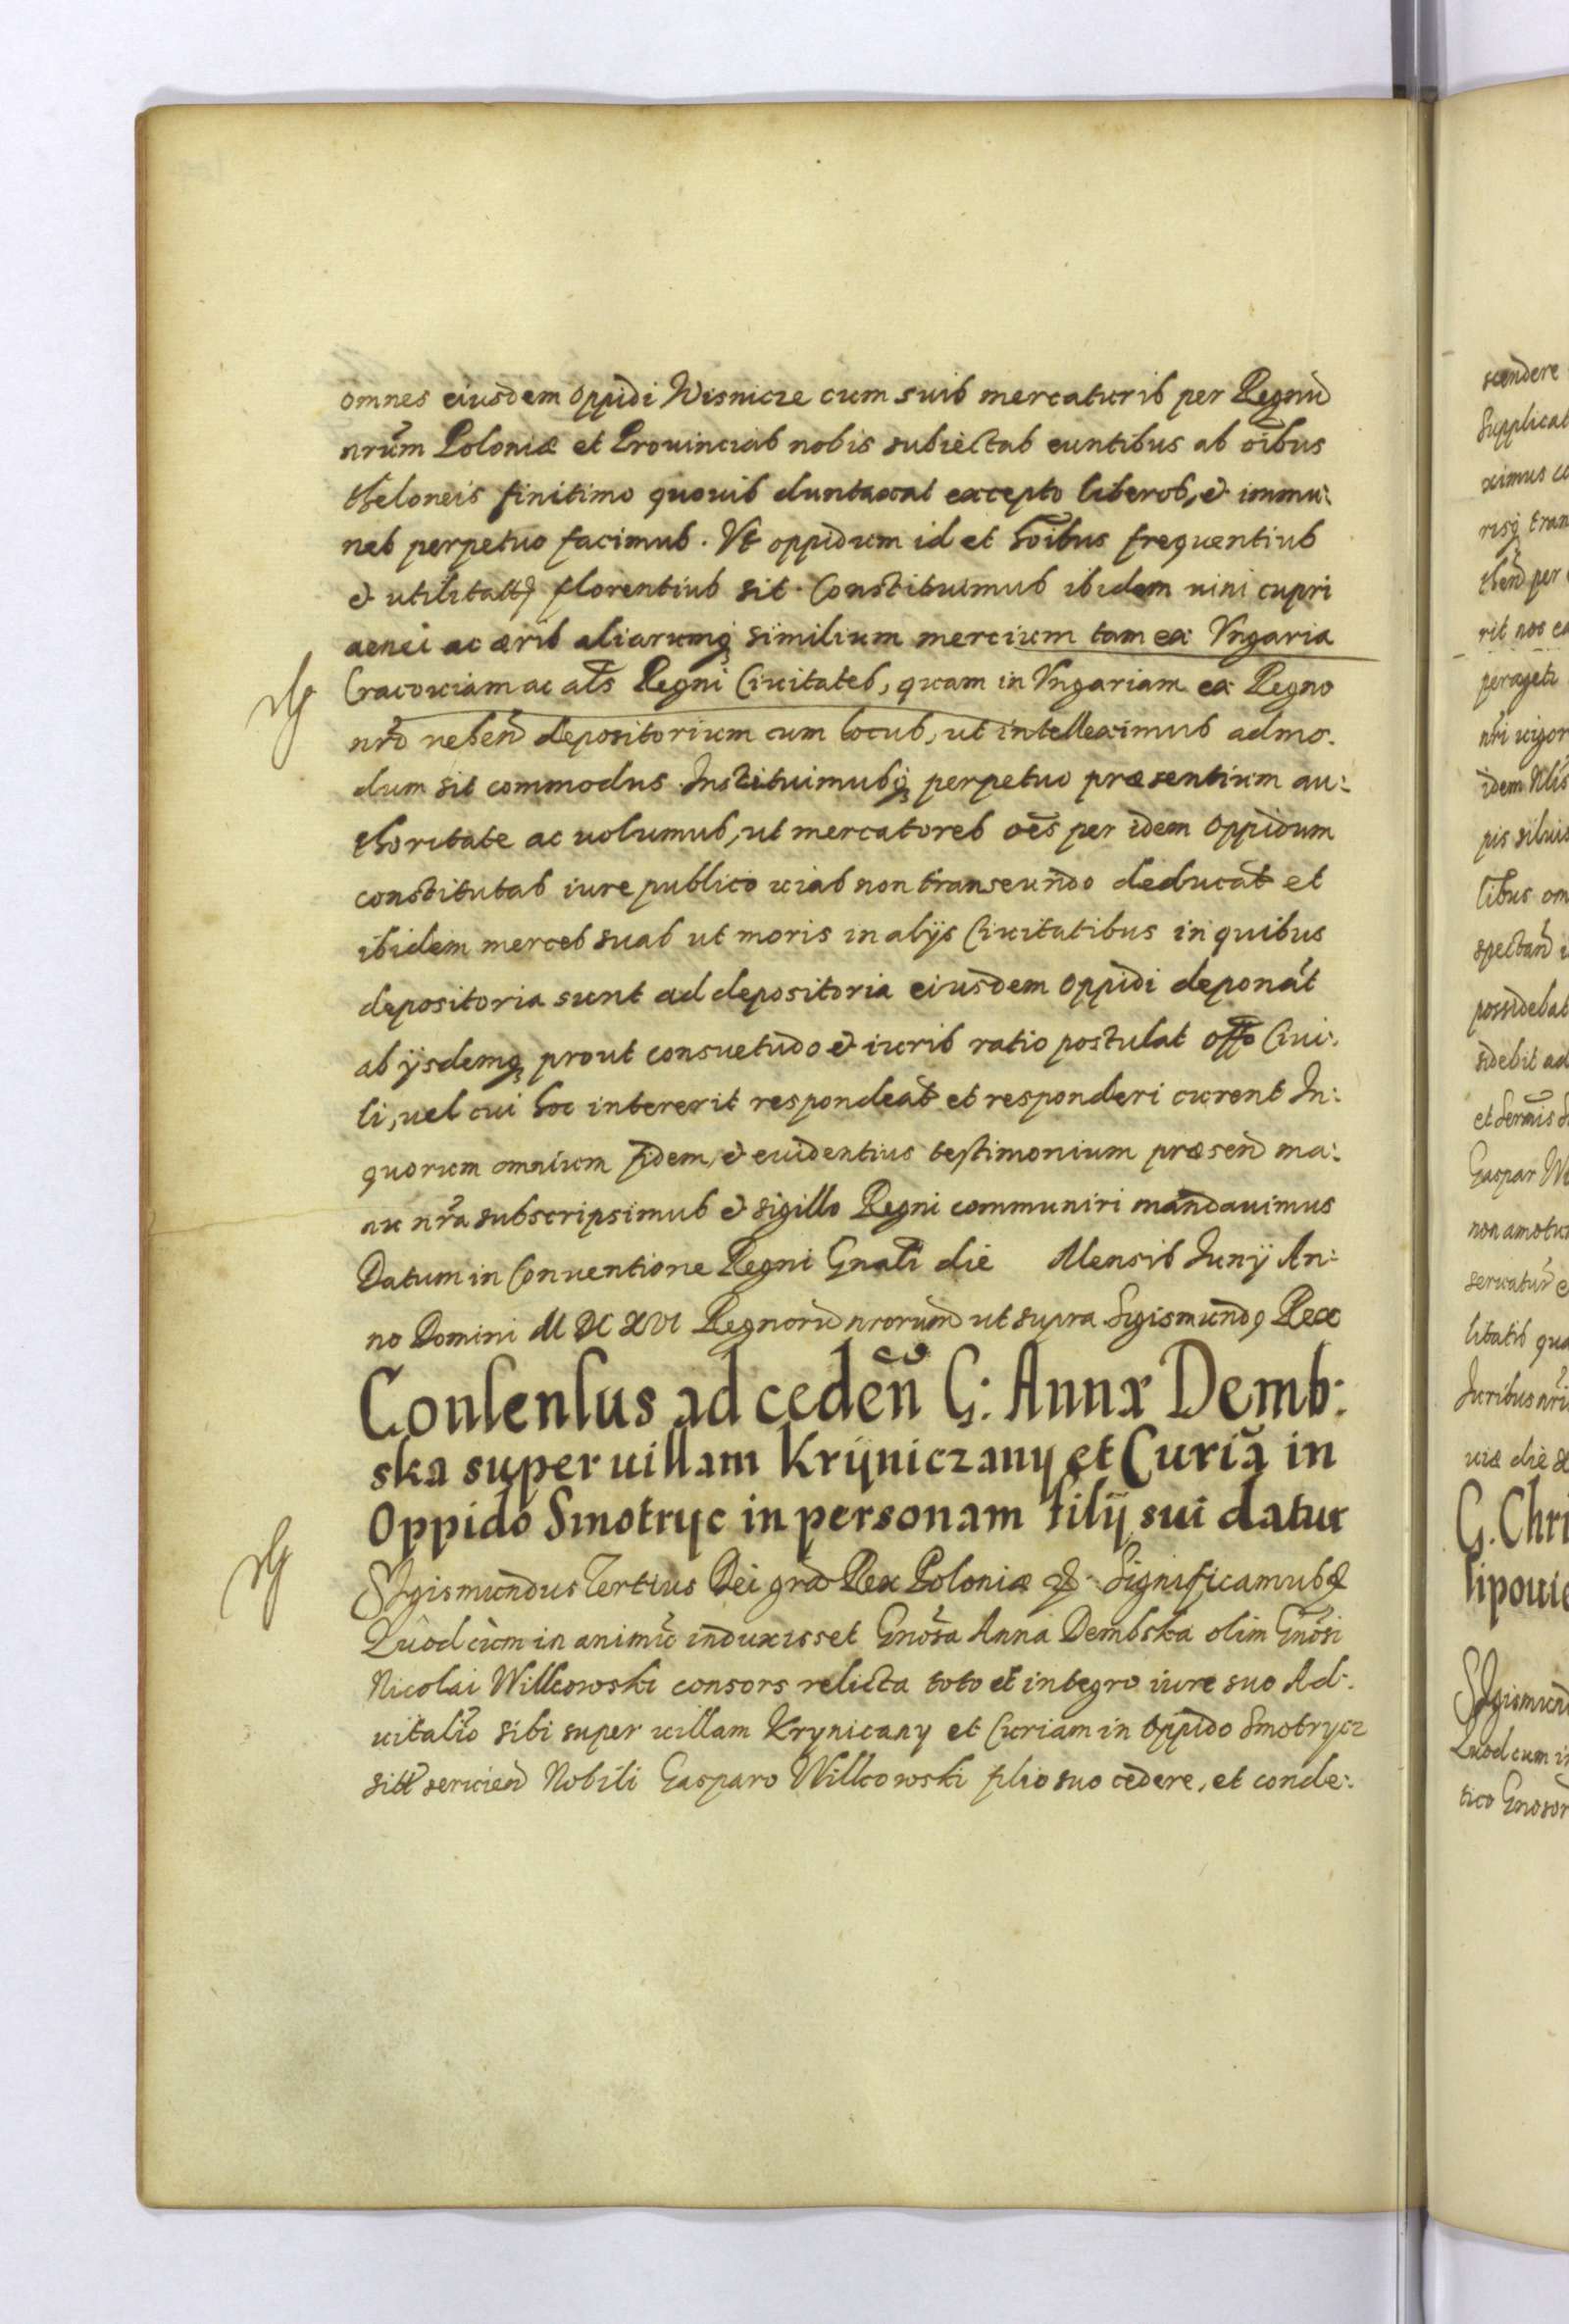 omnes eiusdem Oppidi Wisnicze cum suis mercaturis per Regnũ
nrũm Poloniæ et Prouincias nobis subiectas euntibus ab oĩbus
theloneis finitimo quouis duntaxat excepto liberos, & immu:
nes perpetuo facimus. Vt oppidum id et hoĩbus frequentius
& utilitatẽ florentius sit. Constituimus ibidem uini cupri
aenei ac æris aliarumq; similium mercium tam ex Vngaria
Cracouiam ac als Regni Ciuitates, quam in Vngariam ex Regno
nrõ uehen̄ depositorium cum locus, ut intelleximus admo.
dum sit commodus. Instituimusq; perpetuo præsentium au:
thoritate ac uolumus, ut mercatores oẽs per idem Oppidum
constitutas iure publico uias non transeundo deducãt et
ibidem merces suas ut moris in alijs Ciuitatibus in quibus
depositoria sunt ad depositoria eiusdem Oppidi deponãt
ab ijsdemq; prout consuetudo & iuris ratio postulat Offo Ciui:
li, uel cui hoc intererit respondeãt et responderi curent In:
quorum omnium fidem, & euidentius testimonium præsen̄ ma:
nu nrã subscripsimus & sigillo Regni communiri mandauimus
Datum in Conuentione Regni Gnali die Mensis Junij An:
no Domini M DC XVI Regnorũ nrorum ut supra Sigismundq Rex
Consensus ad ceden̄ G: Annæ Demb:
ska super uillam Kryniczany et Curiã in
Oppido Smotryc in personam filij sui datur
SIgismundus Tertius Dei grã Rex Poloniæ &. Significamus &
Quod cum in animũ induxisset Gnõsa Anna Dembska olim Gnõsi
Nicolai Wilkowski consors relicta toto et integro iure suo Ad:
uitalio sibi super uillam Krynicany et Curiam in Oppido Smotrycz
sibi seruien̄ Nobili Gasparo Wilkowski filio suo cedere, et conde: